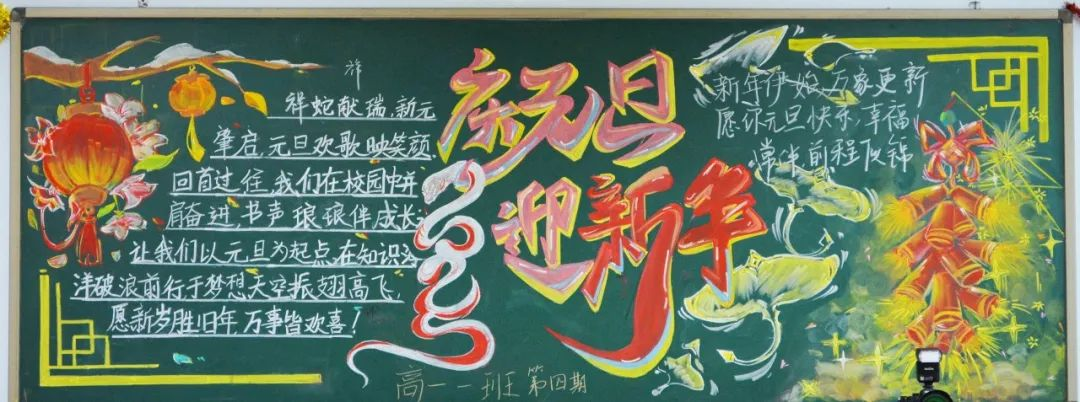 祥
祥蛇献瑞,新元
肇启,元旦欢歌映笑颜,
回首过往,我们在校园中并
肩奋进,书声琅琅伴成长,
让我们以元旦为起点,在知识海
洋破浪前行于梦想天空振翅高飞,
愿新岁胜旧年,万事皆欢喜!
庆元旦
迎新年
新年伊始,万家更新
愿你元旦快乐,幸福
常伴前程似锦
高一一班 第四期